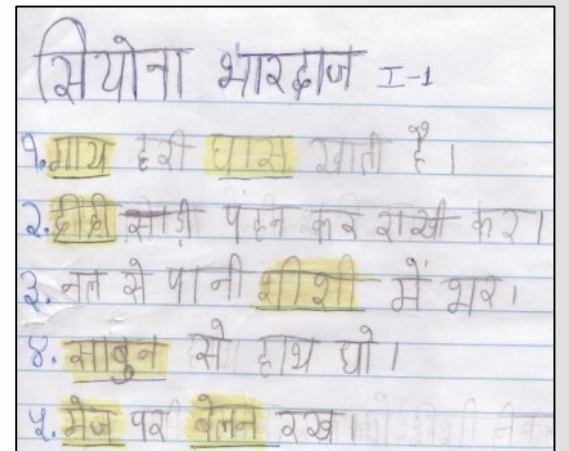 सियोना भारद्वाज I-1
१. गाय हरी घास खाती है।
२. दीदी साड़ी पहन कर राखी कर।
३. नल से पानी शीशी में भर।
४. साबुन से हाथ धो।
५. मेज पर बेलन रख।